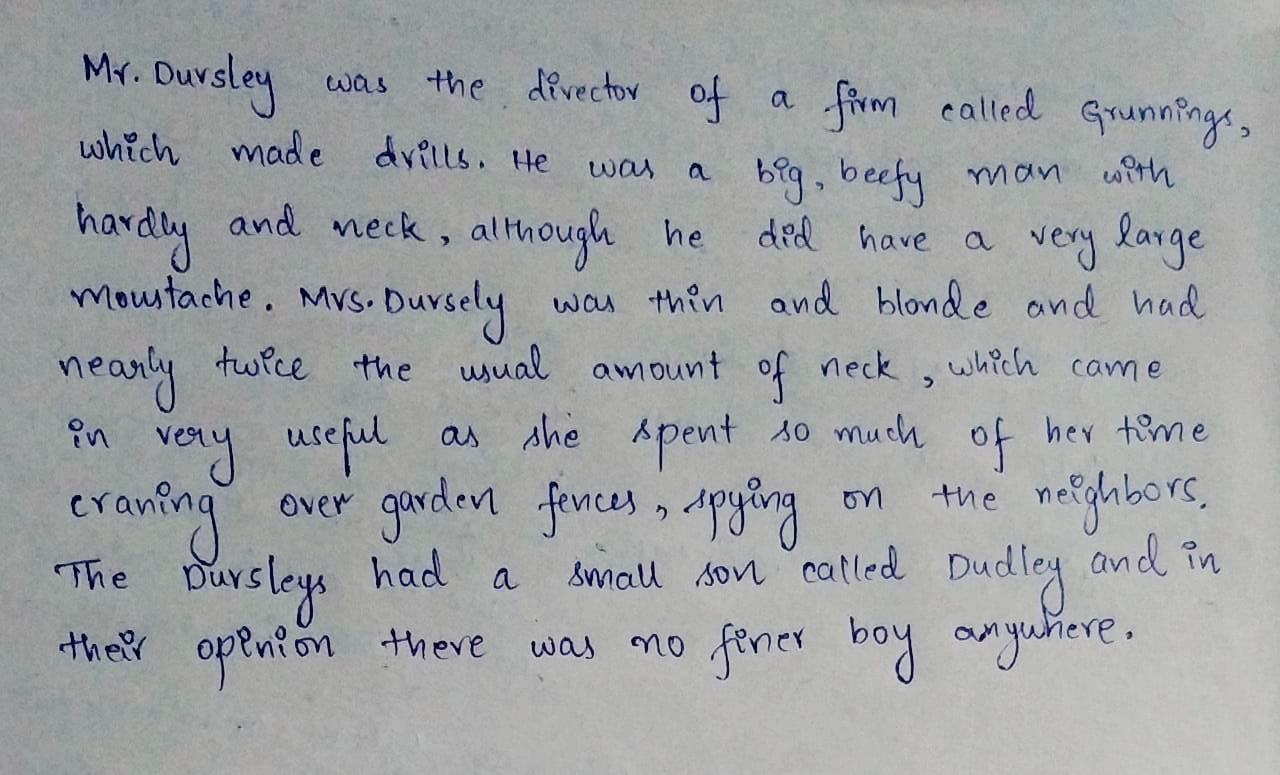 Mr. Dursley was the director of a firm called Grunnings,
which made drills. He was a big, beefy man with
hardly and neck, although he did have a very large
moustache. Mrs. Dursely was thin and blonde and had
nearly twice the usual amount of neck, which came
in very useful as she spent so much of her time
craning over garden fences, spying on the neighbors.
The Dursleys had a small son called Dudley and in
their opinion there was no finer boy anywhere.